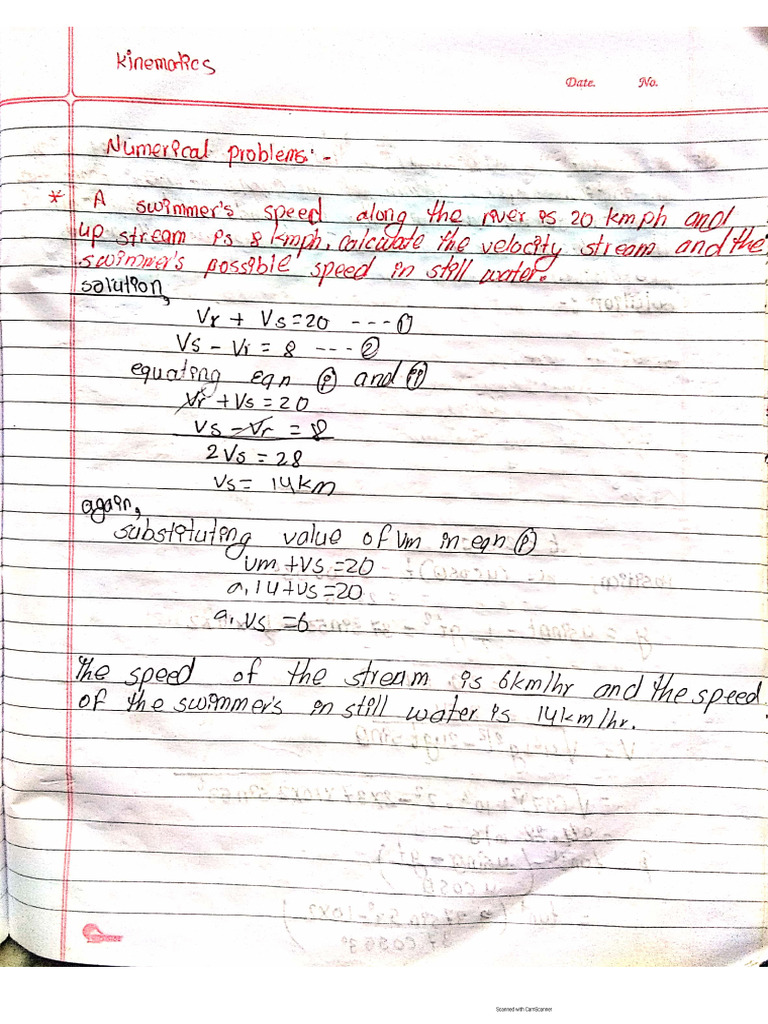 Kinematics
Date. No.
Numerical problems:-
* A swimmer's speed along the river is 20 kmph and
up stream is 8 kmph, calculate the velocity stream and the
swimmer's possible speed in still water.
solution,
Vr + Vs = 20 ---- ①
Vs - Vr = 8 ---- ②
equating eqn (i) and (ii)
Vr + Vs = 20
Vs - Vr = 8
2Vs = 28
Vs = 14km
again,
substituting value of Vm in eqn (i)
vm + vs = 20
a, 14 + vs = 20
a, vs = 6
The speed of the stream is 6km/hr and the speed
of the swimmer's in still water is 14km/hr.
Scanned with CamScanner